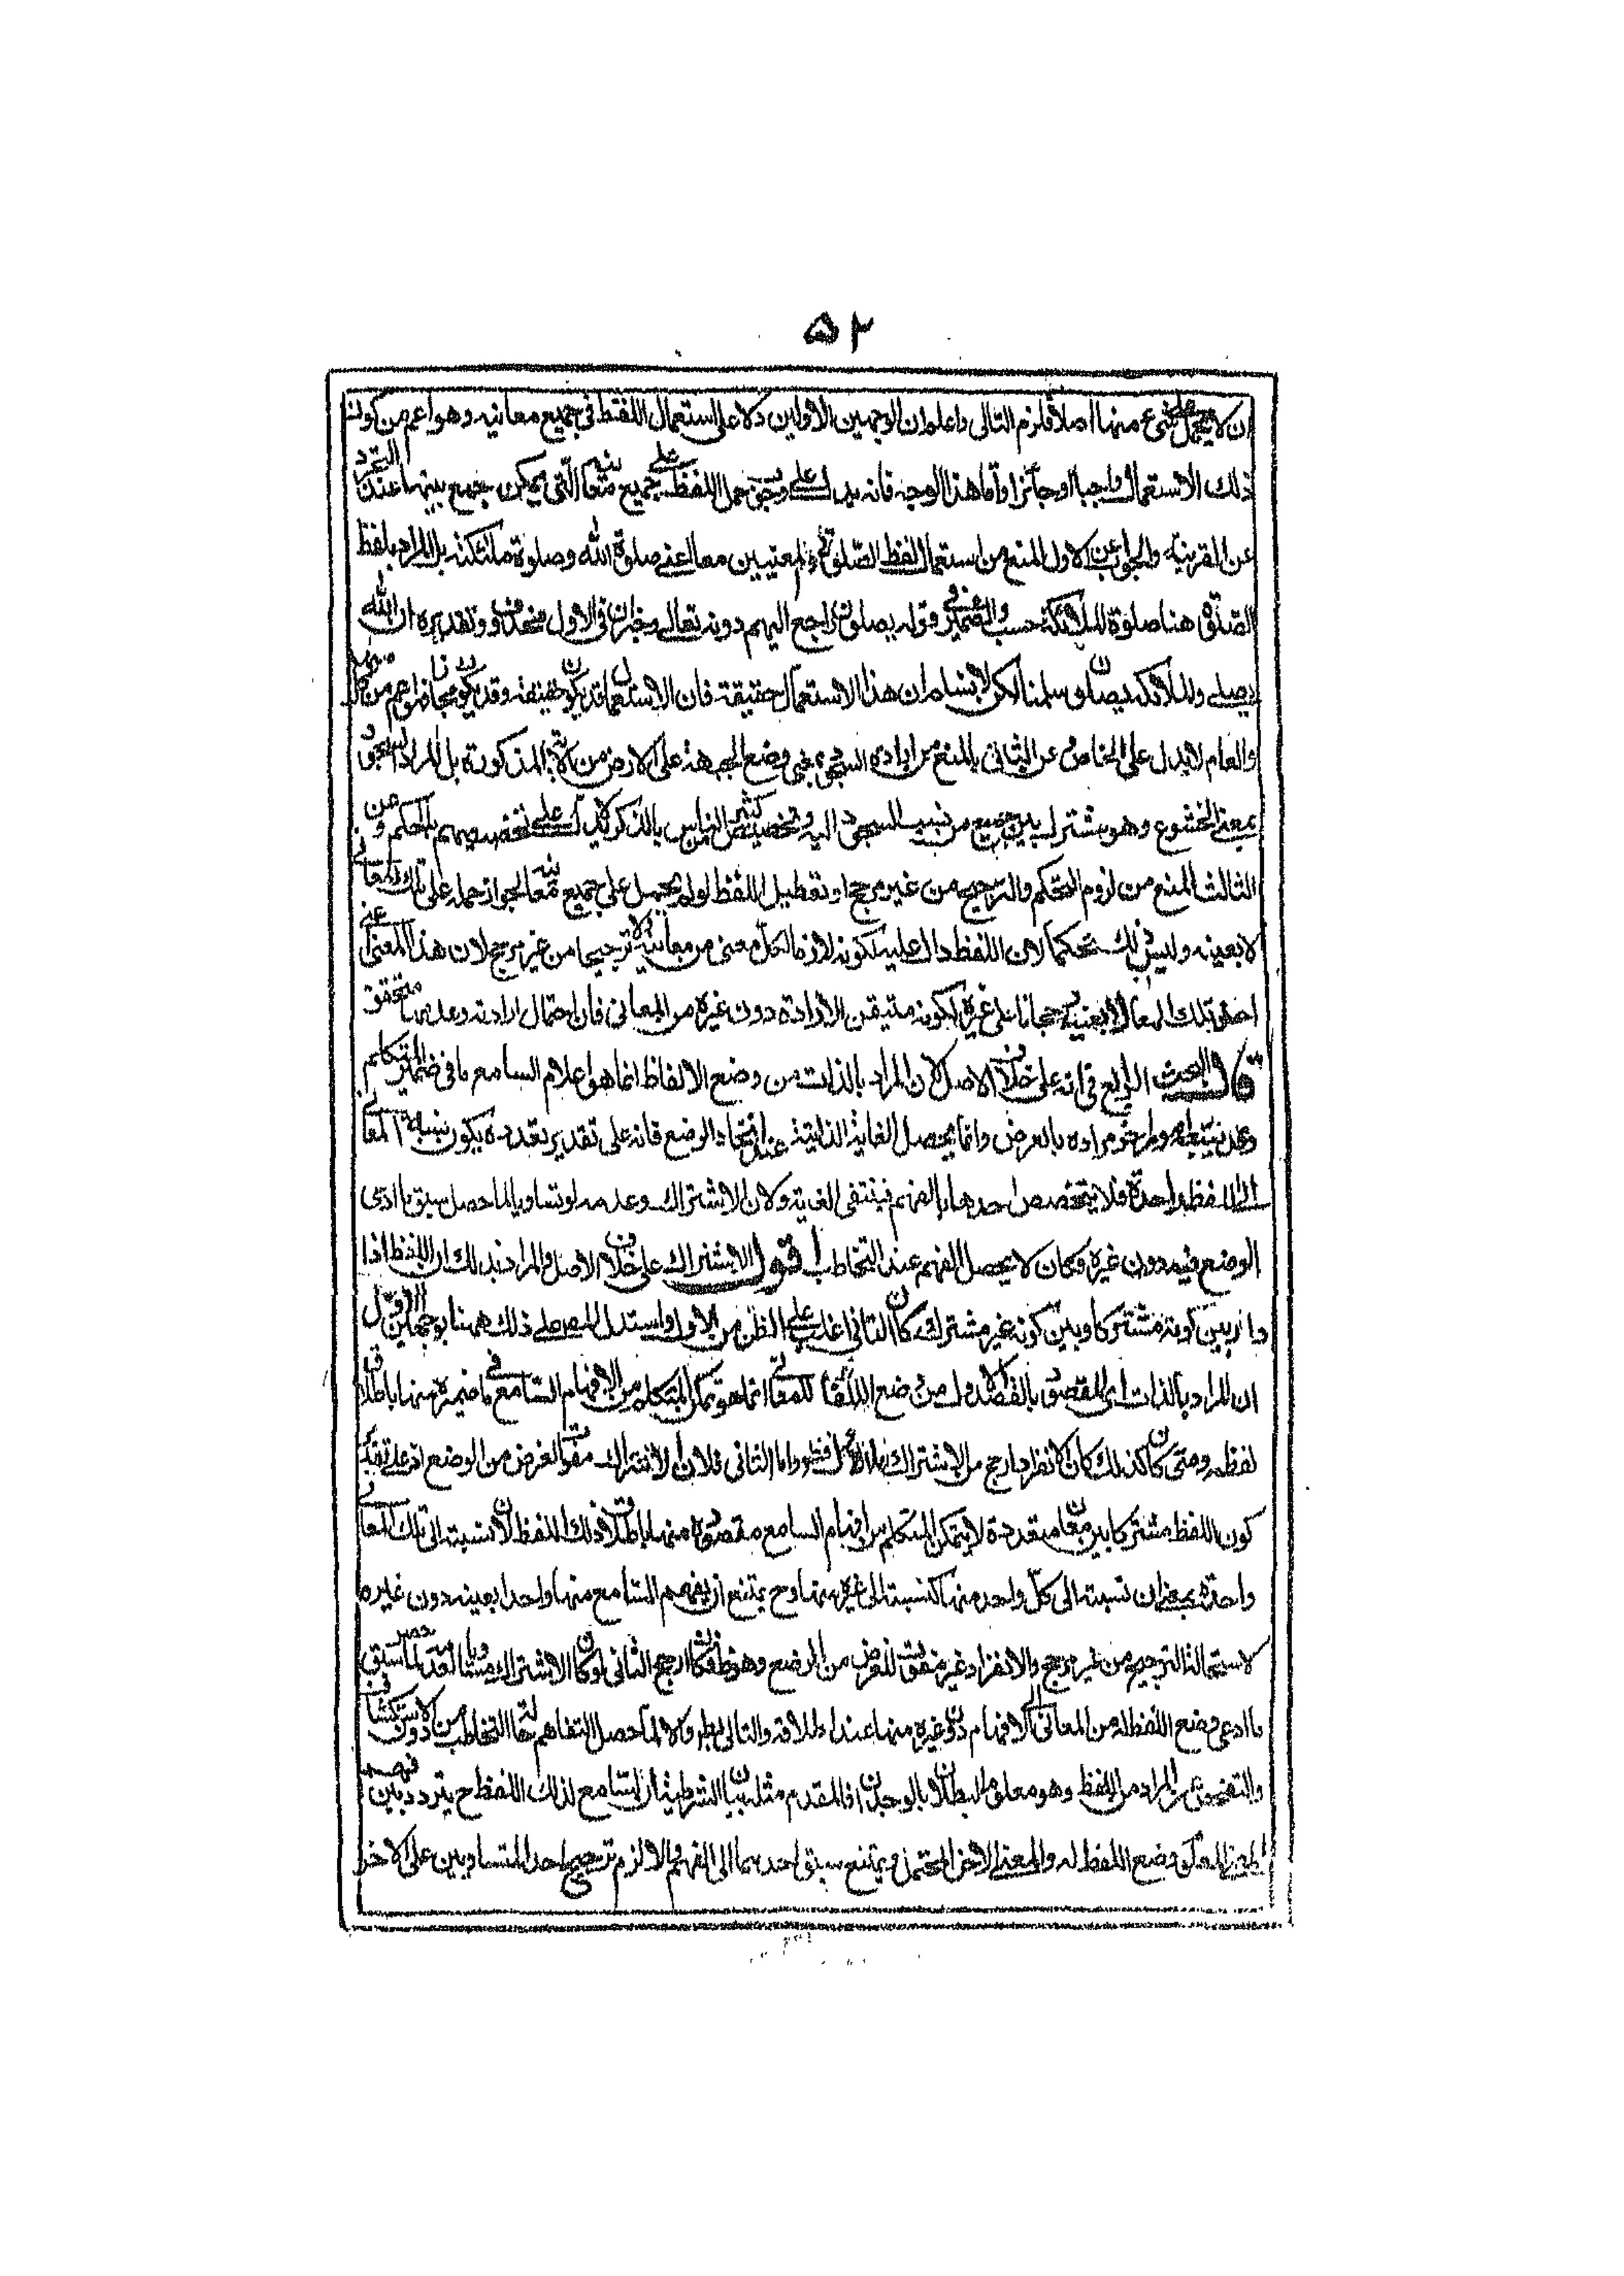 ۵۲
ان لا يحمل على شيء منها اصلا فلزم التالى واعلم ان الوجهين الاولين دلا على استعمال اللفظ فى جميع معانيه وهو اعم من كون
ذلك الاستعمال واجبا او جائزا واما هذا الوجه فانه يدل على وجوب حمل اللفظ على جميع معانيه التى يمكن الجمع بينها عند التجرد
عن القرينة والجواب عن الاول المنع من استعمال لفظ الصلوة فى المعنيين معا اعنى صلوة الله وصلوة ملئكته بل المراد بلفظ
الصلوة هنا صلوة الملائكة حسب والضمير فى قوله يصلون راجع اليهم دونه تعالى وخبر ان فى الاول محذوف وتقديره ان الله
يصلى وملائكته يصلون سلمنا لكن لا نسلم ان هذا الاستعمال حقيقة فان الاستعمال قد يكون حقيقة وقد يكون مجازا فهو اعم من
والعام لا يدل على الخاص وعن الثانى بالمنع من ارادة السجود بمعنى وضع الجبهة على الارض من الاية المذكورة بل المراد السجود
بمعنى الخشوع وهو مشترك بين جميع من نسب السجود اليه وتخصيص كثير من الناس بالذكر لا يدل على تخصيصهم بالحكم وعن
الثالث المنع من لزوم التحكم والترجيح من غير مرجح او تعطيل اللفظ لو لم يحمل على جميع معانيه لجواز حمله على تلك المعانى
لا بعينه وليس ذلك تحكما لان اللفظ دال عليه لكونه لازما لكل معنى من معانيه ولا ترجيحا من غير مرجح لان هذا المعنى اعنى
احد تلك المعانى لا بعينه رجحانا على غيره لكونه متيقن الارادة دون غيره من المعانى فان احتمال ارادته وعدمها متحقق
قال البحث الرابع فى انه على خلاف الاصل لان المراد بالذات من وضع الالفاظ انما هو اعلام السامع ما فى ضمير المتكلم
مراده بالعرض وانما يحصل الغاية الذاتية عند اتحاد الوضع فانه على تقدير تعدده يكون نسبة المعانى
الى اللفظ واحدة فلا يتخصص احدها بالفهم فينتفى الغاية ولان الاشتراك وعدمه لو تساويا لما حصل سبق ما ادعى
الوضع فيه دون غيره وكان لا يحصل الفهم عند التخاطب اقول الاشتراك على خلاف الاصل والمراد بذلك ان اللفظ اذا
دار بين كونه مشتركا وبين كونه غير مشترك كان الثانى اغلب على الظن من الاول واستدل المص على ذلك ههنا بوجهين الاول
ان المراد بالذات اى المقصود بالقصد الاول من وضع الالفاظ للمعانى انما هو تمكن المتكلم من افهام السامع ما فى ضميره منها باطلاق
لفظه ومتى كان كذلك كان الانفراد ارجح من الاشتراك واما الثانى فلان الاشتراك مفوت الغرض من الوضع اذ على تقدير
كون اللفظ مشتركا بين معان متعددة لا يتمكن المتكلم من افهام السامع مقصوده منها باطلاق ذلك اللفظ لان نسبته الى تلك المعانى
واحدة بمعنى ان نسبته الى كل واحد منها كنسبته الى غيره منها وح يمتنع ان يفهم السامع منها واحدا بعينه دون غيره
لاستحالة الترجيح من غير مرجح والانفراد غير مفوت للغرض من الوضع وهو ظ فكان ارجح الثانى لو كان الاشتراك مساويا لعدمه لما سبق
ما ادعى وضع اللفظ له من المعانى الى الافهام دون غيره منها عند اطلاقه والتالى بط والا لما حصل التفاهم حالة التخاطب من دون الاستكشاف
والتفحص عن المراد من اللفظ وهو معلوم البطلان بالوجدان فالمقدم مثله بيان الشرطية ان السامع لذلك اللفظ ح يتردد بين فهم
المعنى وضع اللفظ له والمعنى الاخر المحتمل ويمتنع سبق احدهما الى الفهم والا لزم ترجيح احد المتساويين على الاخر